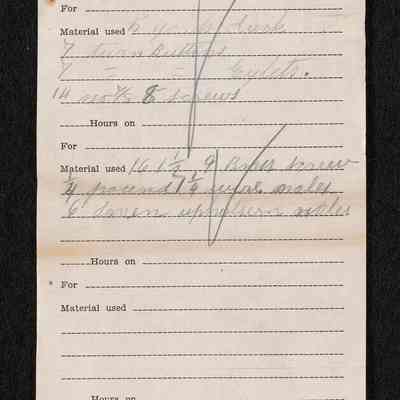 For
Material used 5 yards duck
7 turn Buttons
7 " " Eylets.
14 no 7/8 8 screws
Hours on
For
Material used 16 1 1/2 9 Brass screw
1/4 pound 1 1/4 wire nales
6 dozen upholsern nales
Hours on
For
Material used
Hours on